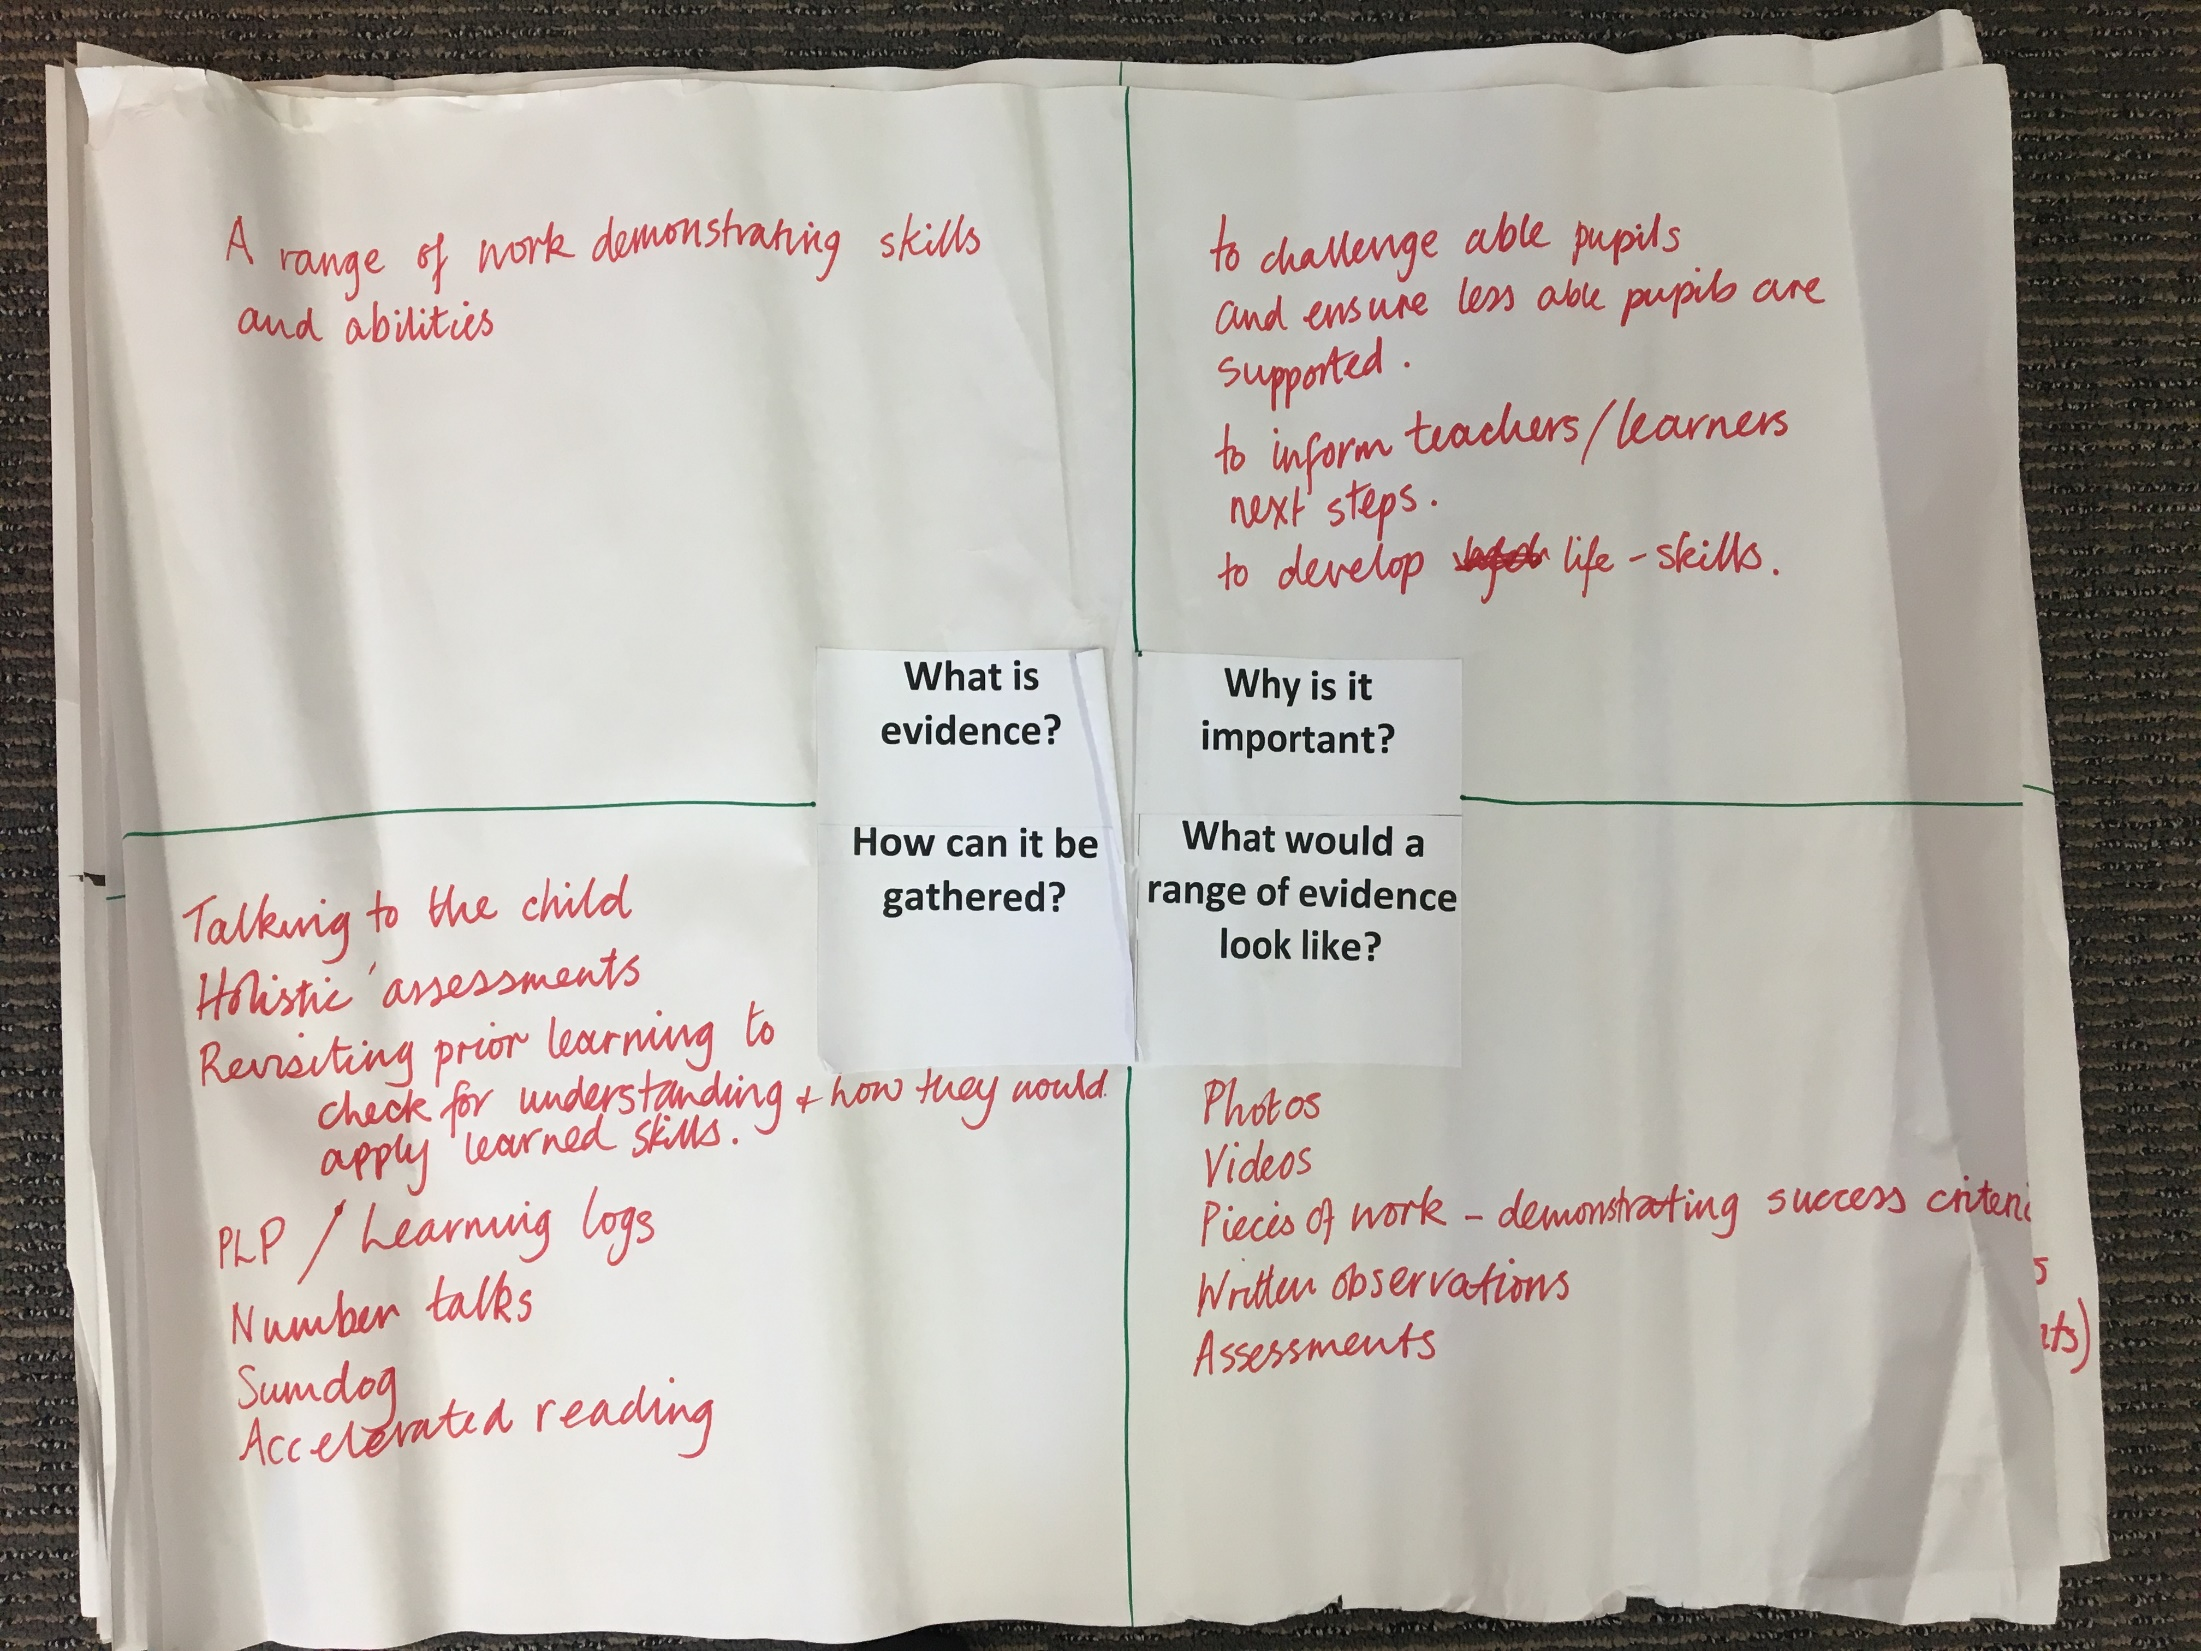 A range of work demonstrating skills
and abilities
to challenge able pupils
and ensure less able pupils are
supported.
to inform teachers/learners
next steps.
to develop life-skills.
What is
evidence?
Why is it
important?
How can it be
gathered?
What would a
range of evidence
look like?
Talking to the child
Holistic assessments
Revisiting prior learning to
check for understanding + how they would
apply learned skills.
PLP / Learning logs
Number talks
Sumdog
Accelerated reading
Photos
Videos
Pieces of work - demonstrating success criteri
Written observations
Assessments